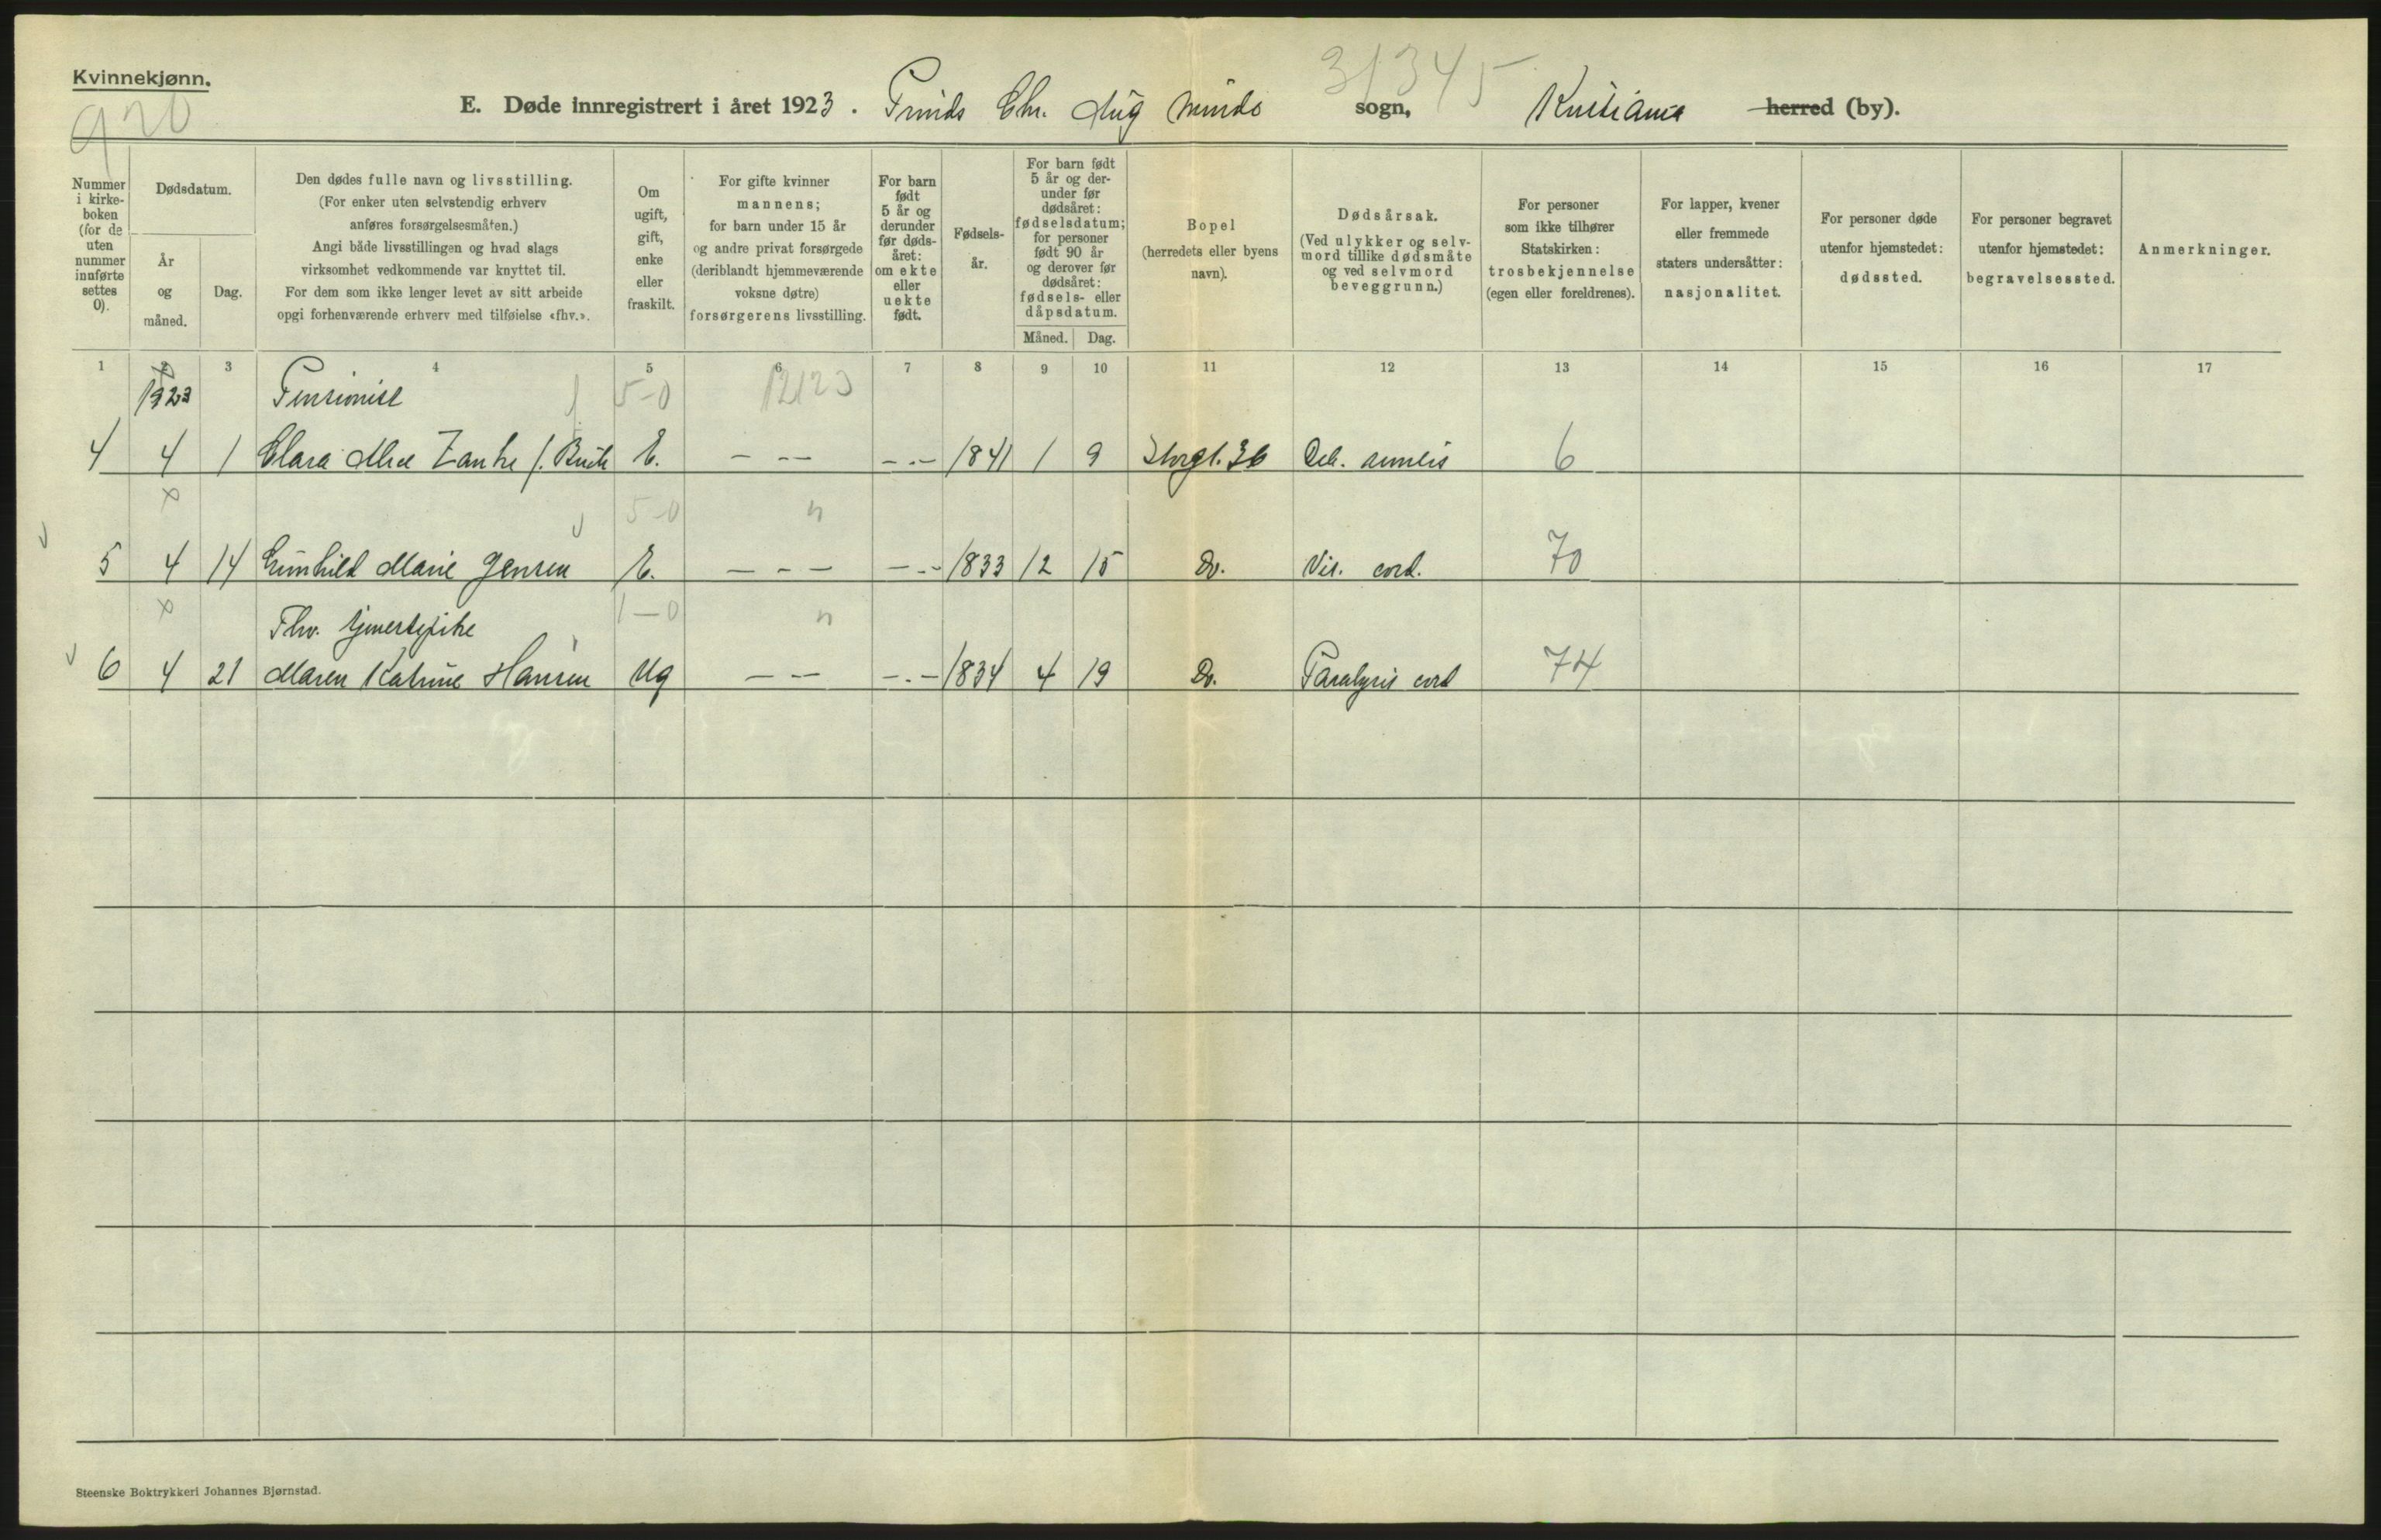 Kvinnekjønn.
920
31345
E. Døde innregistrert i året 1923. Prinds Chr. Aug minde sogn, Kristiania herred (by).
Nummer i kirkeboken (for de uten nummer innførte settes 0).
Dødsdatum.
År og måned.
Dag.
Den dødes fulle navn og livsstilling.
(For enker uten selvstendig erhverv
anføres forsørgelsesmåten.)
Angi både livsstillingen og hvad slags
virksomhet vedkommende var knyttet til.
For dem som ikke lenger levet av sitt arbeide
opgi forhenværende erhverv med tilføielse «fhv.».
Om ugift, gift, enke eller fraskilt.
For gifte kvinner
mannens;
for barn under 15 år
og andre privat forsørgede
(deriblandt hjemmeværende
voksne døtre)
forsørgerens livsstilling.
For barn født 5 år og derunder før dødsåret: om ekte eller uekte født.
Fødselsår.
For barn født 5 år og derunder før dødsåret: fødselsdatum; for personer født 90 år og derover før dødsåret: fødsels- eller dåpsdatum.
Måned. Dag.
Bopel
(herredets eller byens
navn).
Dødsårsak.
(Ved ulykker og selvmord tillike dødsmåte
og ved selvmord
beveggrunn.)
For personer
som ikke tilhører
Statskirken:
trosbekjennelse
(egen eller foreldrenes).
For lapper, kvener
eller fremmede
staters undersåtter:
nasjonalitet.
For personer døde
utenfor hjemstedet:
dødssted.
For personer begravet
utenfor hjemstedet:
begravelsessted.
Anmerkninger.
1 2 3 4 5 6 7 8 9 10 11 12 13 14 15 16 17
1923 Pensionist 5-0 12123
4 4 1 Clara E. - -- -.- 1841 1 9 Storgt. 36 6
x 5-0 n
5 4 14 Gunhild Marie Jensen E. - - - -.- 1833 12 15 Do. Vit. cord. 70
x Fhv. tjenestepike 1-0 n
6 4 21 Maren Katrine Hansen Ug - -- -.- 1834 4 19 Do. Paralysis cord 74
Steenske Boktrykkeri Johannes Bjørnstad.